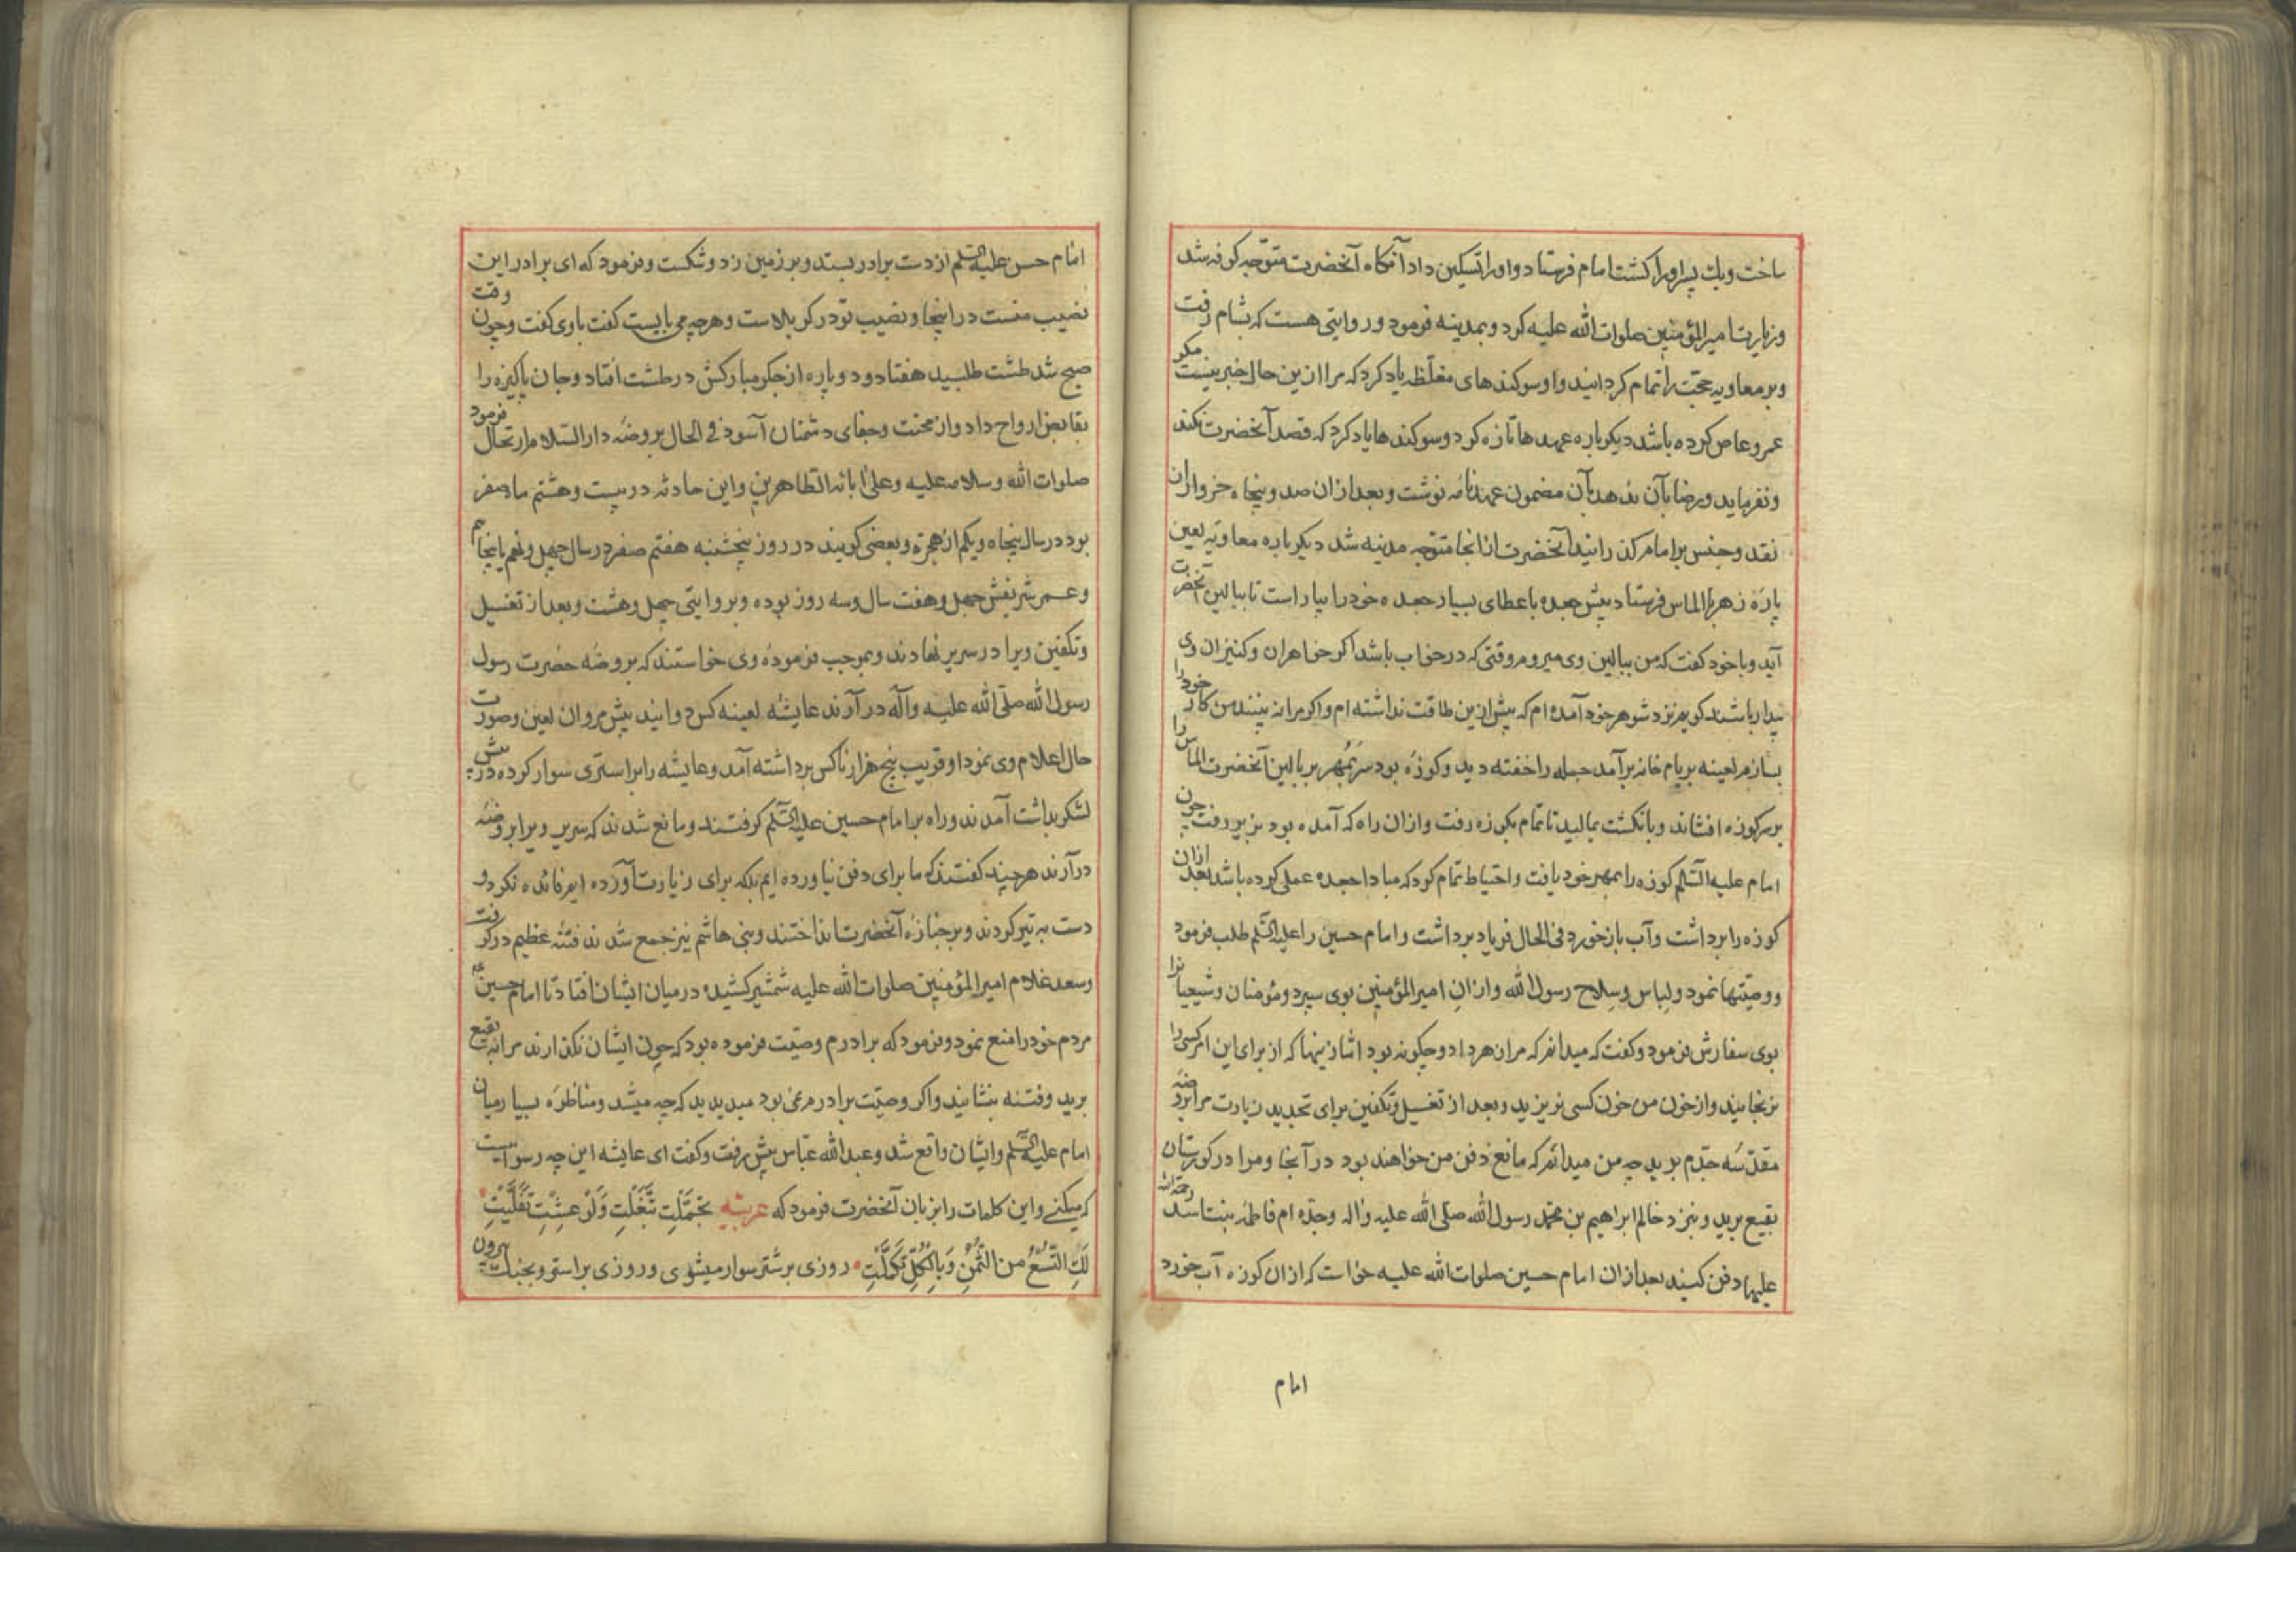 ساخت ویك پسر اورا بکشت امام فرستاد و اورا تسکین داد آنکاه آنحضرت متوجّه کوفه شد
وزیارت امیرالمؤمنین صلوات الله علیه کرد و بمدینه فرمود و روایتی هست که بشام رفت
وبر معاویه حجّت را تمام کردانید و او سوکندهای مغلّظه یاد کرد که مرا ازین حال خبر نیست مکر
عمرو عاص کرده باشد دیکرباره عهدها تازه کرد و سوکندها یاد کرد که قصد آنحضرت نکند
ونفرماید ورضا بآن ندهد بآن مضمون عهدنامه نوشت و بعد ازان صد و پنجاه خروار ازان
نقد وجنس بر امام کذرانید آنحضرت از انجا متوجه مدینه شد دیکرباره معاویه لعین
پارهٔ زهر با الماس فرستاد پیش جعده با عطای بسیار جعده خود را بیاراست تا ببالین آنحضرت
آید و با خود کفت که من ببالین وی میروم وقتی که در خواب باشد اکر خواهران و کنیزان وی
بیدار باشند کویم نزد شوهر خود آمده ام که بیش ازین طاقت نداشته ام و اکر مرا نه بینند من کار خود را
بسازم لعینه بر بام خانه برآمد جمله را خفته دید و کوزهٔ بود سَر بمُهر بر بالین آنحضرت الماس را
بر سر کوزه افشاند و بانکشت بمالید تا تمام بکوزه رفت و ازان راه که آمده بود بزیر رفت چون
امام علیه السّلم کوزه را بمهر خود یافت و احتیاط تمام کرد که مبادا جعده عملی کرده باشد بعد ازان
کوزه را برداشت و آب باز خورد فی الحال فریاد برداشت و امام حسین را علیه السّلم طلب فرمود
و وصیّتها نمود و لباس وسِلاح رسول الله و ازانِ امیرالمؤمنین بوی سپرد و مؤمنان و شیعیانرا
بوی سفارش فرمود و کفت که میدانم که مرا زهر داد و چکونه بود اما زینهار که از برای این امر کسی را
نرنجانید و از خون من خون کسی نریزید و بعد از تغسیل و تکفین برای تجدید زیارت مرا بروضهٔ
مقدّسهٔ جدّم برید چه من میدانم که مانع دفن من خواهند بود در آنجا و مرا در کورستان
بقیع برید و بنزد خالم ابراهیم بن محمّد رسول الله صلّی الله علیه وآله وجدّه ام فاطمهٔ بنت اسد رحمة الله
علیهما دفن کنید بعد ازان امام حسین صلوات الله علیه خواست که ازان کوزه آب خورد
امام
امام حسن علیه السّلم از دست برادر بستد و بر زمین زد و شکست و فرمود که ای برادر این
نصیب منست در اینجا و نصیب تو در کربلاست و هرچه می بایست کفت باوی کفت و چون وقت
صبح شد طشت طلبید هفتاد و دو پاره از جکر مبارکش در طشت افتاد و جان پاکیزه را
بقابض ارواح داد و از محنت و جفای دشمنان آسود فی الحال بروضهٔ دار السّلام ارتحال فرمود
صلوات الله وسلامه علیه وعلی ابائه الطاهرین و این حادثه در بیست و هشتم ماه صفر
بود در سال پنجاه و یکم از هجرة و بعضی کویند در روز پنجشنبه هفتم صفر در سال چهل و نهم یا پنجاهم
و عمر شریفش چهل و هفت سال و سه روز بوده و بروایتی چهل و هشت و بعد از تغسیل
و تکفین ویرا در سریر نهادند و بموجب فرمودهٔ وی خواستند که بروضه حضرت رسول
رسول الله صلّی الله علیه وآله در آرند عایشه لعینه کس دوانید پیش مروان لعین و صورت
حال اعلام وی نمود او قریب پنج هزار ناکس برداشته آمد و عایشه را بر استری سوار کرده در پیش
لشکر بداشت آمدند و راه بر امام حسین علیه السّلم کرفتند و مانع شدند که سریر ویرا بروضهٔ
درآرند هرچند کفتند که ما برای دفن نیاورده ایم بلکه برای زیارت آورده ایم فائده نکرد و
دست به تیر کردند و بر جنازهٔ آنحضرت انداختند و بنی هاشم نیز جمع شدند فتنه عظیم در کرفت
وسعد غلام امیر المؤمنین صلوات الله علیه شمشیر کشیده در میان ایشان افتاد تا امام حسین
مردم خود را منع نمود و فرمود که برادرم وصیّت فرموده بود که چون ایشان نکذارند مرا به بقیع
برید و فتنه بنشانید و اکر وصیّت برادرم نمی بود میدیدید که چه میشد و مناظرهٔ بسیار میان
امام علیه السّلم و ایشان واقع شد و عبد الله عبّاس پیش رفت و کفت ای عایشه این چه رسواییست
که میکنی و این کلمات را بزبان آنحضرت فرمود که عربیه تَجَمَّلْتِ تَبَغَّلْتِ وَلَوْ عِشْتِ تَفَیَّلْتِ
لَكِ التُّسْعُ مِنَ الثُّمْنِ وَبِالْکُلِّ تَکَمَّلْتِ روزی بر شتر سوار میشوی و روزی بر استر و بجنك بیرون